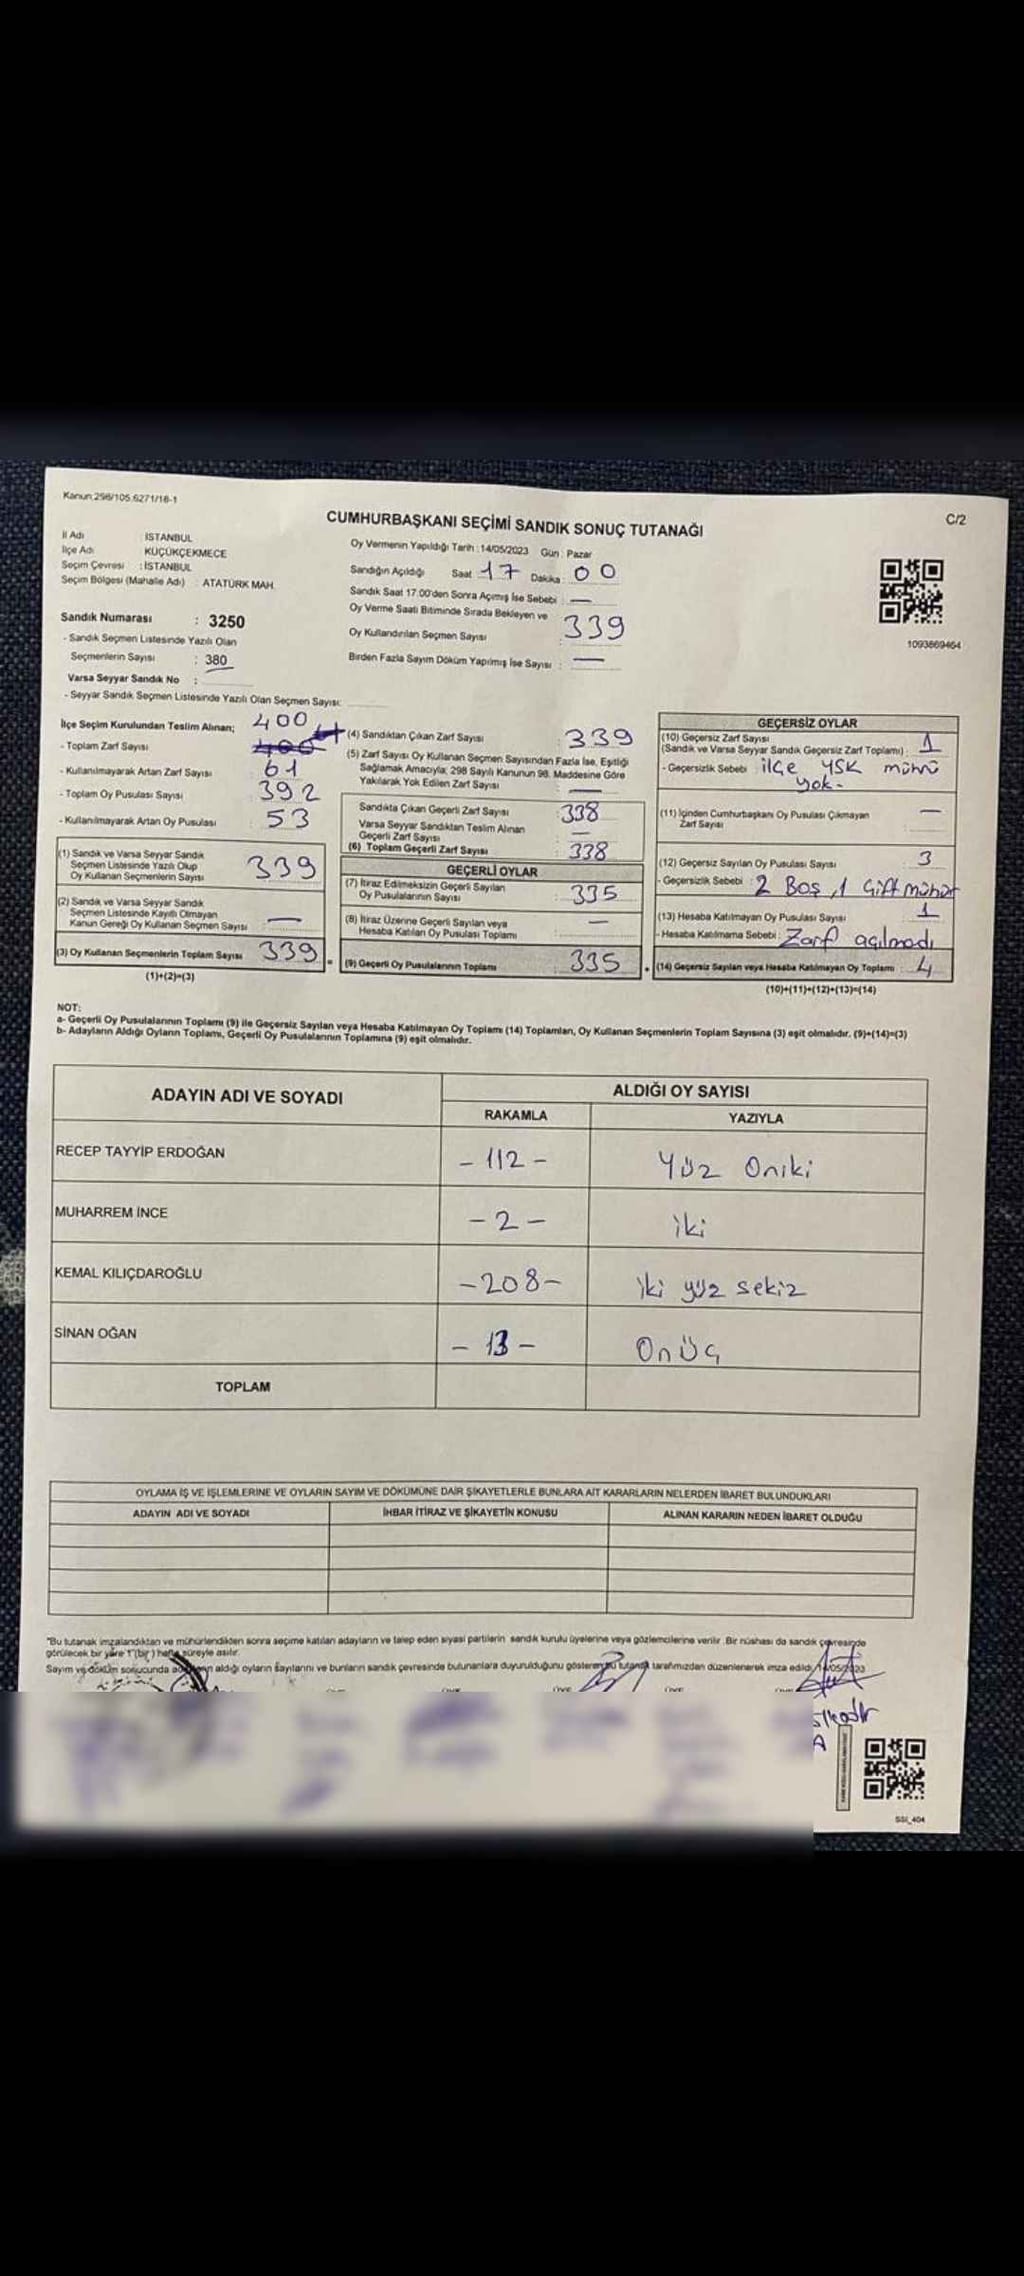 Kanun:298/105.6271/18-1
C/2
CUMHURBAŞKANI SEÇİMİ SANDIK SONUÇ TUTANAĞI
İl Adı İSTANBUL
İlçe Adı KÜÇÜKÇEKMECE
Seçim Çevresi : İSTANBUL
Seçim Bölgesi (Mahalle Adı) : ATATÜRK MAH.
Sandık Numarası : 3250
- Sandık Seçmen Listesinde Yazılı Olan
Seçmenlerin Sayısı : 380
Varsa Seyyar Sandık No :
- Seyyar Sandık Seçmen Listesinde Yazılı Olan Seçmen Sayısı:
Oy Vermenin Yapıldığı Tarih : 14/05/2023 Gün : Pazar
Sandığın Açıldığı Saat 17 Dakika : 00
Sandık Saat 17.00'den Sonra Açımış İse Sebebi : —
Oy Verme Saati Bitiminde Sırada Bekleyen ve
Oy Kullandırılan Seçmen Sayısı : 339
Birden Fazla Sayım Döküm Yapılmış İse Sayısı : —
1093869464
İlçe Seçim Kurulundan Teslim Alınan; 400
- Toplam Zarf Sayısı 400
- Kullanılmayarak Artan Zarf Sayısı : 61
- Toplam Oy Pusulası Sayısı : 392
- Kullanılmayarak Artan Oy Pusulası : 53
(1) Sandık ve Varsa Seyyar Sandık
Seçmen Listesinde Yazılı Olup
Oy Kullanan Seçmenlerin Sayısı 339
(2) Sandık ve Varsa Seyyar Sandık
Seçmen Listesinde Kayıtlı Olmayan
Kanun Gereği Oy Kullanan Seçmen Sayısı —
(3) Oy Kullanan Seçmenlerin Toplam Sayısı 339 =
(1)+(2)=(3)
(4) Sandıktan Çıkan Zarf Sayısı : 339
(5) Zarf Sayısı Oy Kullanan Seçmen Sayısından Fazla İse, Eşitliği
Sağlamak Amacıyla; 298 Sayılı Kanunun 98. Maddesine Göre
Yakılarak Yok Edilen Zarf Sayısı : —
Sandıkta Çıkan Geçerli Zarf Sayısı : 338
Varsa Seyyar Sandıktan Teslim Alınan
Geçerli Zarf Sayısı : —
(6) Toplam Geçerli Zarf Sayısı : 338
GEÇERLİ OYLAR
(7) İtiraz Edilmeksizin Geçerli Sayılan
Oy Pusulalarının Sayısı : 335
(8) İtiraz Üzerine Geçerli Sayılan veya
Hesaba Katılan Oy Pusulası Toplamı —
(9) Geçerli Oy Pusulalarının Toplamı 335 +
GEÇERSİZ OYLAR
(10) Geçersiz Zarf Sayısı
(Sandık ve Varsa Seyyar Sandık Geçersiz Zarf Toplamı) : 1
- Geçersizlik Sebebi : ilçe YSK mührü
yok-
(11) İçinden Cumhurbaşkanı Oy Pusulası Çıkmayan
Zarf Sayısı : —
(12) Geçersiz Sayılan Oy Pusulası Sayısı : 3
- Geçersizlik Sebebi : 2 Boş, 1 Çift mühür
(13) Hesaba Katılmayan Oy Pusulası Sayısı : 1
- Hesaba Katılmama Sebebi : Zarf açılmadı
(14) Geçersiz Sayılan veya Hesaba Katılmayan Oy Toplamı : 4
(10)+(11)+(12)+(13)=(14)
NOT:
a- Geçerli Oy Pusulalarının Toplamı (9) ile Geçersiz Sayılan veya Hesaba Katılmayan Oy Toplamı (14) Toplamları, Oy Kullanan Seçmenlerin Toplam Sayısına (3) eşit olmalıdır. (9)+(14)=(3)
b- Adayların Aldığı Oyların Toplamı, Geçerli Oy Pusulalarının Toplamına (9) eşit olmalıdır.
ADAYIN ADI VE SOYADI ALDIĞI OY SAYISI
RAKAMLA YAZIYLA
RECEP TAYYİP ERDOĞAN - 112 - Yüz Oniki
MUHARREM İNCE - 2 - iki
KEMAL KILIÇDAROĞLU - 208 - iki yüz sekiz
SİNAN OĞAN - 13 - Onüç
TOPLAM
OYLAMA İŞ VE İŞLEMLERİNE VE OYLARIN SAYIM VE DÖKÜMÜNE DAİR ŞİKAYETLERLE BUNLARA AİT KARARLARIN NELERDEN İBARET BULUNDUKLARI
ADAYIN ADI VE SOYADI İHBAR İTİRAZ VE ŞİKAYETİN KONUSU ALINAN KARARIN NEDEN İBARET OLDUĞU
*Bu tutanak imzalandıktan ve mühürlendikten sonra seçime katılan adayların ve talep eden siyasi partilerin sandık kurulu üyelerine veya gözlemcilerine verilir. Bir nüshası da sandık çevresinde
görülecek bir yere 1 (bir) hafta süreyle asılır.
Sayım ve döküm sonucunda adayların aldığı oyların sayılarını ve bunların sandık çevresinde bulunanlara duyurulduğunu gösteren bu tutanak tarafımızdan düzenlenerek imza edildi. 14/05/2023
SSI_404